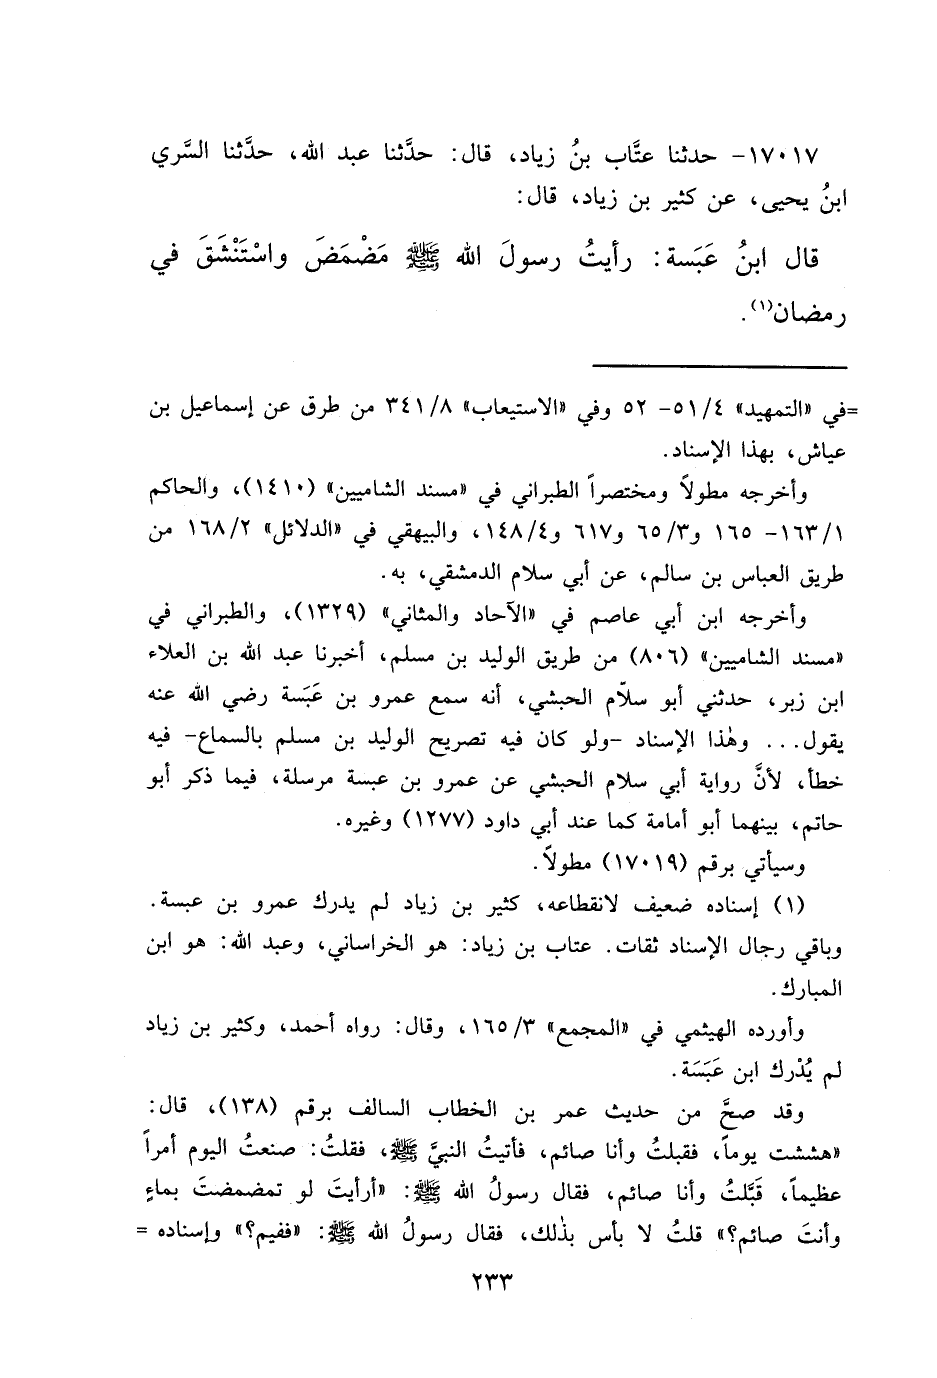 ١٧٠١٧- حدثنا عتَّاب بنُ زياد، قال: حدَّثنا عبد الله، حدَّثنا السَّري
ابنُ يحيى، عن كثير بن زياد، قال:
قال ابنُ عَبَسة: رأيتُ رسولَ الله ﷺ مَضْمَضَ واسْتَنْشَقَ في
رمضان(١).
=في «التمهيد» ٥١/٤- ٥٢ وفي «الاستيعاب» ٣٤١/٨ من طرق عن إسماعيل بن
عياش، بهذا الإسناد.
وأخرجه مطولاً ومختصراً الطبراني في «مسند الشاميين» (١٤١٠)، والحاكم
١٦٣/١- ١٦٥ و٦٥/٣ و٦١٧ و١٤٨/٤، والبيهقي في «الدلائل» ١٦٨/٢ من
طريق العباس بن سالم، عن أبي سلام الدمشقي، به.
وأخرجه ابن أبي عاصم في «الآحاد والمثاني» (١٣٢٩)، والطبراني في
«مسند الشاميين» (٨٠٦) من طريق الوليد بن مسلم، أخبرنا عبد الله بن العلاء
ابن زبر، حدثني أبو سلاّم الحبشي، أنه سمع عمرو بن عَبَسة رضي الله عنه
يقول... وهٰذا الإسناد -ولو كان فيه تصريح الوليد بن مسلم بالسماع- فيه
خطأ، لأنَّ رواية أبي سلام الحبشي عن عمرو بن عبسة مرسلة، فيما ذكر أبو
حاتم، بينهما أبو أمامة كما عند أبي داود (١٢٧٧) وغيره.
وسيأتي برقم (١٧٠١٩) مطولاً.
(١) إسناده ضعيف لانقطاعه، كثير بن زياد لم يدرك عمرو بن عبسة.
وباقي رجال الإسناد ثقات. عتاب بن زياد: هو الخراساني، وعبد الله: هو ابن
المبارك.
وأورده الهيثمي في «المجمع» ١٦٥/٣، وقال: رواه أحمد، وكثير بن زياد
لم يُدْرك ابن عَبَسَة.
وقد صحَّ من حديث عمر بن الخطاب السالف برقم (١٣٨)، قال:
«هششت يوماً، فقبلتُ وأنا صائم، فأتيتُ النبيَّ ﷺ، فقلتُ: صنعتُ اليوم أمراً
عظيماً، قَبَّلتُ وأنا صائم، فقال رسولُ الله ﷺ: «أرأيتَ لو تمضمضتَ بماءٍ
وأنتَ صائم؟» قلتُ لا بأس بذٰلك، فقال رسولُ الله ﷺ: «ففيم؟» وإسناده =
٢٣٣